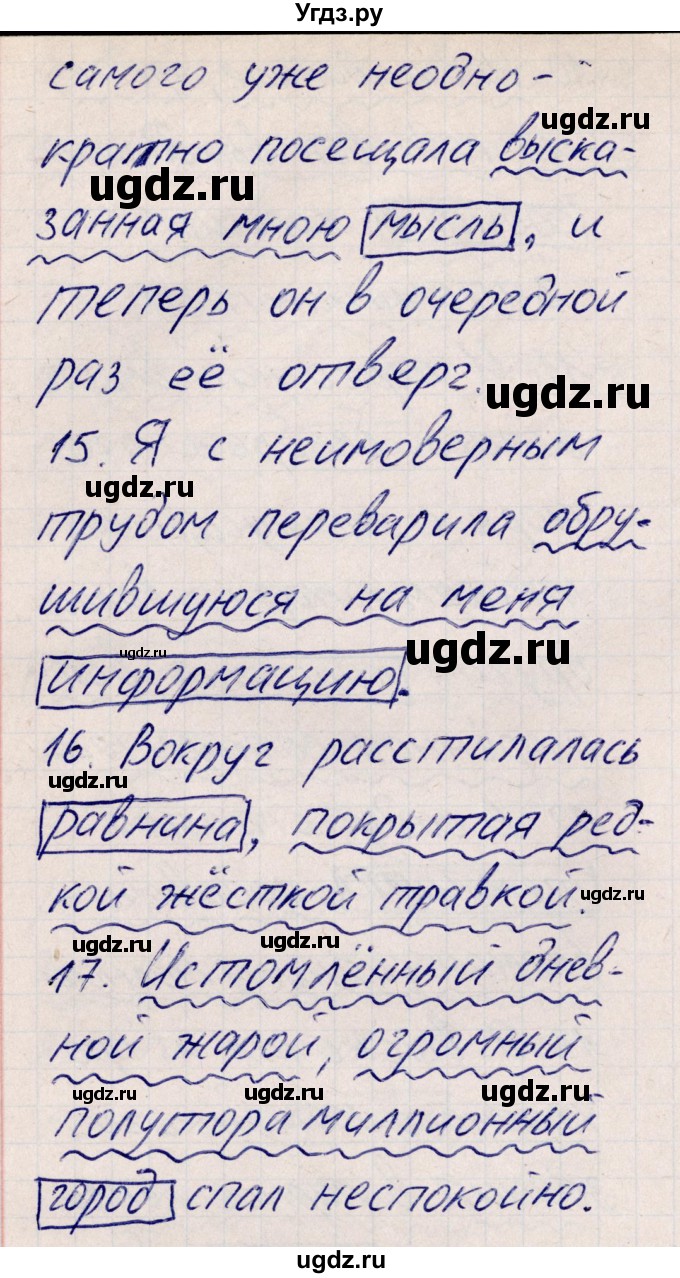 Угдз.ру
самого уже неодно-
ugdz.ru
кратно посещала выска-
ugdz.ru
занная мною мысль, и
теперь он в очередной
раз её отверг.
ugdz.ru
15. Я с неимоверным
ugdz.ru
трудом переварила обру-
шившуюся на меня
ugdz.ru
ugdz.ru
информацию.
16. Вокруг расстилалась
ugdz.ru
равнина, покрытая ред-
кой жёсткой травкой.
ugdz.ru
ugdz.ru
ugdz.ru
17. Истомлённый днев-
ной жарой, огромный
ugdz.ru
ugdz.ru
ugdz.ru
полутора миллионный
город спал неспокойно.
ugdz.ru